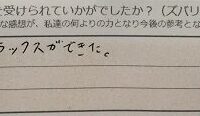 を受けられていかがでしたか？（ズバリ
な感想が、私達の何よりの力となり今後の参考とな
ラックスができた。